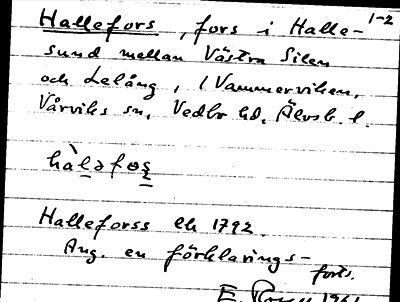 1-2
Hallefors, fors i Halle-
sund mellan Västra Silen
och Lelång, i Vammerviken,
Vårviks sn, Vedbo hd, Älvsb. l.
hàləfoş
Halleforss ek 1792.
Ang. en förklarings-
forts.
E. 1961